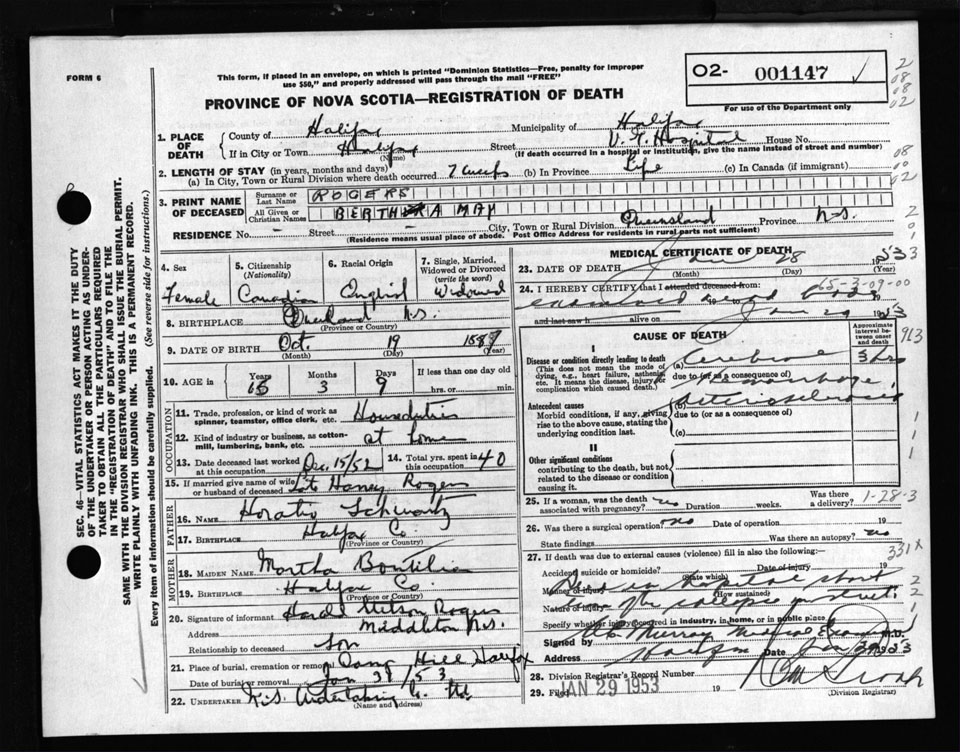 FORM 6
This form, if placed in an envelope, on which is printed "Dominion Statistics—Free, penalty for improper
use $50," and properly addressed will pass through the mail "FREE"
O2- 001147 ✓
For use of the Department only
PROVINCE OF NOVA SCOTIA—REGISTRATION OF DEATH
2
08
08
02
1. PLACE OF DEATH
County of Halifax Municipality of Halifax
If in City or Town Halifax (Name) Street V.G. Hospital House No.
(If death occurred in a hospital or institution, give the name instead of street and number)
2. LENGTH OF STAY (in years, months and days)
(a) In City, Town or Rural Division where death occurred 7 weeks (b) In Province Life (c) In Canada (if immigrant)
08
00
02
3. PRINT NAME OF DECEASED
Surname or Last Name ROGERS
All Given or Christian Names BERTHA MAY
RESIDENCE No. - Street - City, Town or Rural Division Queensland Province N.S.
(Residence means usual place of abode. Post Office Address for residents in rural parts not sufficient)
2
0
1
4. Sex
Female
5. Citizenship (Nationality)
Canadian
6. Racial Origin
English
7. Single, Married, Widowed or Divorced (write the word)
Widowed
8. BIRTHPLACE N.S.
(Province or Country)
9. DATE OF BIRTH Oct. 19 1887
(Month) (Day) (Year)
10. AGE in Years 65 Months 3 Days 9
If less than one day
hrs. or min.
OCCUPATION
11. Trade, profession, or kind of work as spinner, teamster, office clerk, etc. Houseduties
12. Kind of industry or business, as cotton-mill, lumbering, bank, etc. at home
13. Date deceased last worked at this occupation Dec. 15/52
14. Total yrs. spent in this occupation 40
15. If married give name of wife or husband of deceased Late Harvey Rogers
FATHER
16. NAME Horatio Schwartz
17. BIRTHPLACE Halifax Co.
(Province or Country)
MOTHER
18. MAIDEN NAME Martha Boutilier
19. BIRTHPLACE Halifax Co.
(Province or Country)
20. Signature of informant Rogers
Address Middleton N.S.
Relationship to deceased Son
21. Place of burial, cremation or removal Camp Hill Halifax
Date of burial or removal Jan /53
22. UNDERTAKER N.S. Undertaking Co. Ltd
(Name and Address)
MEDICAL CERTIFICATE OF DEATH
23. DATE OF DEATH Jan 28 1953
(Month) (Day) (Year)
3
65-3-09-00
24. I HEREBY CERTIFY that I attended deceased from:
examined
and last saw h alive on Jan 29 1953
CAUSE OF DEATH
Approximate interval between onset and death
913
I
Disease or condition directly leading to death
(This does not mean the mode of dying, e.g., heart failure, asthenia, etc. It means the disease, injury, or complication which caused death.)
(a) Cerebral
due to (or as a consequence of)
Hemorrhage
3 hrs
Antecedent causes
Morbid conditions, if any, giving rise to the above cause, stating the underlying condition last.
(b) Arteriosclerosis
due to (or as a consequence of)
(c)
II
Other significant conditions
contributing to the death, but not related to the disease or condition causing it.
1
1
1
25. If a woman, was the death associated with pregnancy? no Duration weeks. Was there a delivery?
1-28-3
26. Was there a surgical operation? no Date of operation 19
State findings Was there an autopsy? no
27. If death was due to external causes (violence) fill in also the following:
331X
Accident, suicide or homicide? Date of injury 19
(State which)
Manner of injury (How sustained)
Died in hospital short
Nature of injury
time after collapse
Specify whether injury occurred in industry, in home, or in public place
2
2
1
Signed by Murray Medical Examiner M.D.
Address Halifax Date Jan 29 1953
28. Division Registrar's Record Number
29. Filed JAN 29 1953 19
(Division Registrar)
SEC. 46—VITAL STATISTICS ACT MAKES IT THE DUTY
OF THE UNDERTAKER OR PERSON ACTING AS UNDER-
TAKER TO OBTAIN ALL THE PARTICULARS REQUIRED
IN THE "REGISTRATION OF DEATH" AND TO FILE THE
SAME WITH THE DIVISION REGISTRAR WHO SHALL ISSUE THE BURIAL PERMIT.
WRITE PLAINLY WITH UNFADING INK. THIS IS A PERMANENT RECORD.
Every item of information should be carefully supplied. (See reverse side for instructions.)